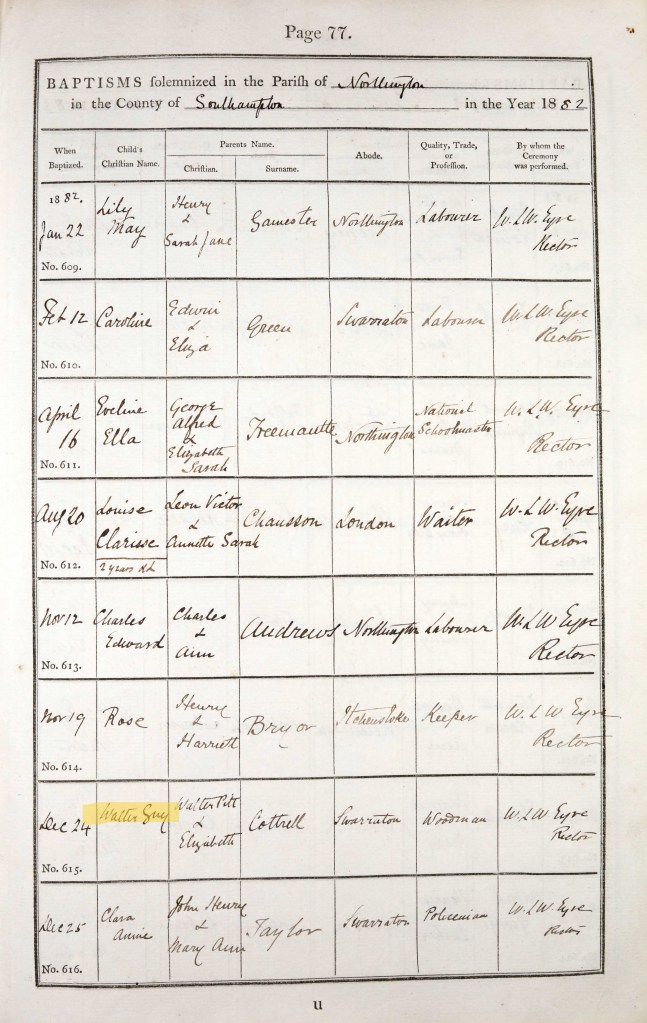 Page 77.
BAPTISMS solemnized in the Parish of Northington
in the County of Southampton in the Year 1882
When Baptized. Child's Christian Name. Parents Name. Abode. Quality, Trade, or Profession. By whom the Ceremony was performed.
Christian. Surname.
1882.
Jan 22 Lily May Henry & Sarah Jane Gamester Northington Labourer W. L. W. Eyre Rector
No. 609.
Feb 12 Caroline Edwin & Eliza Green Swarraton Labourer W. L. W. Eyre Rector
No. 610.
April 16 Eveline Ella George Alfred & Elizabeth Sarah Freemantle Northington National Schoolmaster W. L. W. Eyre Rector
No. 611.
Aug 20 Louise Clarisse Leon Victor & Annette Sarah Chausson London Waiter W. L. W. Eyre Rector
No. 612. 2 years old
Nov 12 Charles Edward Charles & Ann Andrews Northington Labourer W L W Eyre Rector
No. 613.
Nov 19 Rose Henry & Harriett Bryor Itchenstoke Keeper W. L W Eyre Rector
No. 614.
Dec 24 Walter Guy Walter Pitt & Elizabeth Cottrell Swarraton Woodman W. L W Eyre Rector
No. 615.
Dec 25 Clara Annie John Henry & Mary Ann Taylor Swarraton Policeman W. L W. Eyre Rector
No. 616.
U